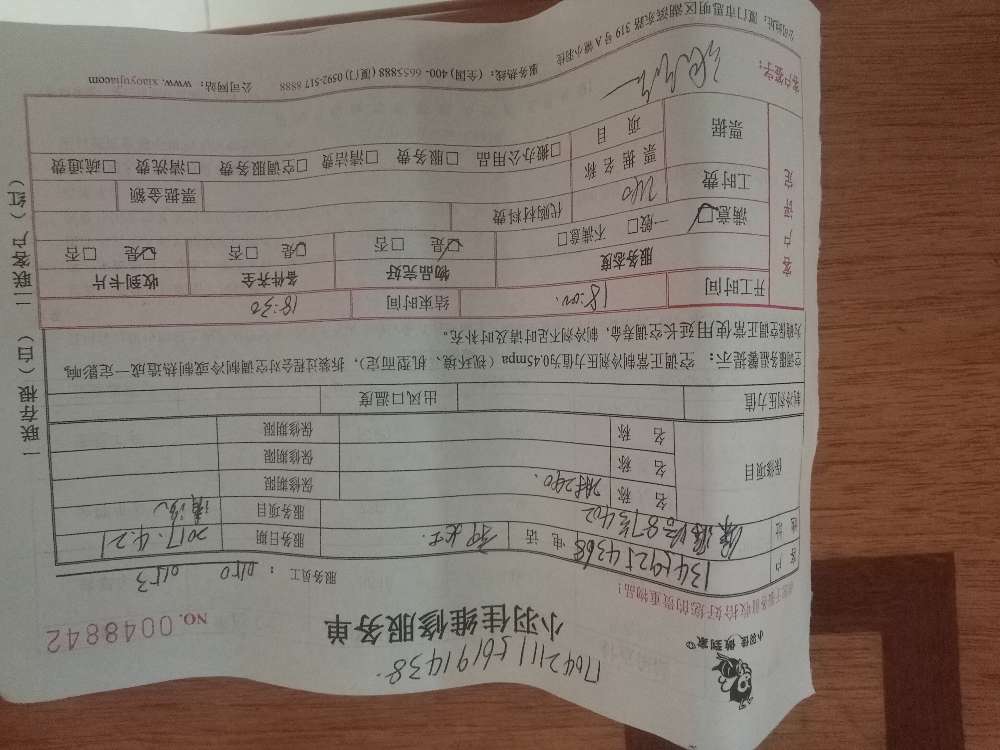 小羽佳 做到家
1704211156191438.
小羽佳维修服务单
NO. 0048842
请您于服务前收拾好您的贵重物品!
服务员工: 0150 0153
客户 电话 13459254368 服务日期 2017.4.21
地址 87号402 服务项目 清洗
保修项目 名称 保修期限
名称 保修期限
名称 保修期限
制冷剂压力值 出风口温度
空调服务温馨提示: 空调正常制冷剂压力值为0.45mpa(视环境、机型而定),拆装过程会对空调制冷或制热造成一定影响,
为确保空调正常使用延长空调寿命,制冷剂不足时请及时补充。
开工时间 18:00. 结束时间 18:30
客户评定 服务态度 物品完好 备件齐全 收到卡片
满意☑ 一般□ 不满意□ ☑是 □否 ☑是 □否 ☑是 □否
工时费 240 代购材料费 票据金额
票据 票据名称 □搬办公用品 □服务费 □清洁费 □空调服务费 □清洗费 □疏通费
项目
客户签字:
服务热线:(全国)400-6655888(厦门)0592-517 8888 公司网站:www.xiaoyujia.com
公司地址:厦门市思明区湖滨东路319号A幢小羽佳
一联存根(白) 二联客户(红)